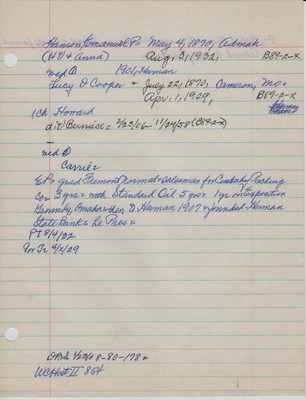 Hemon, Emanuel P= May 4, 1870, Admah
(H V & Anna) Aug, 3, 1932, B89-2-X
md ① 1901, Herman
Lucy D Cooper = July 22, 1870, Cameron, Mo.
Apr, 1, 1929, B89-2-X
1 Ch. Howard
d.v/ Berniece= 2/23/06- 11/24/58 (B89-2-X)
md ②
Carrie=
EP= grad Fremont Normal= salesman for Cudahy Packing
Co= 3 yrs= mth Standard Oil 5 yrs= 1 yr on Exposition
Grounds, Omaha= then to Herman 1907 & founded Herman
State Bank= Le Pres=
PT 8/4/32
Por Tr 4/4/29
DBA 1/2/68-80-178=
WCHist II 854